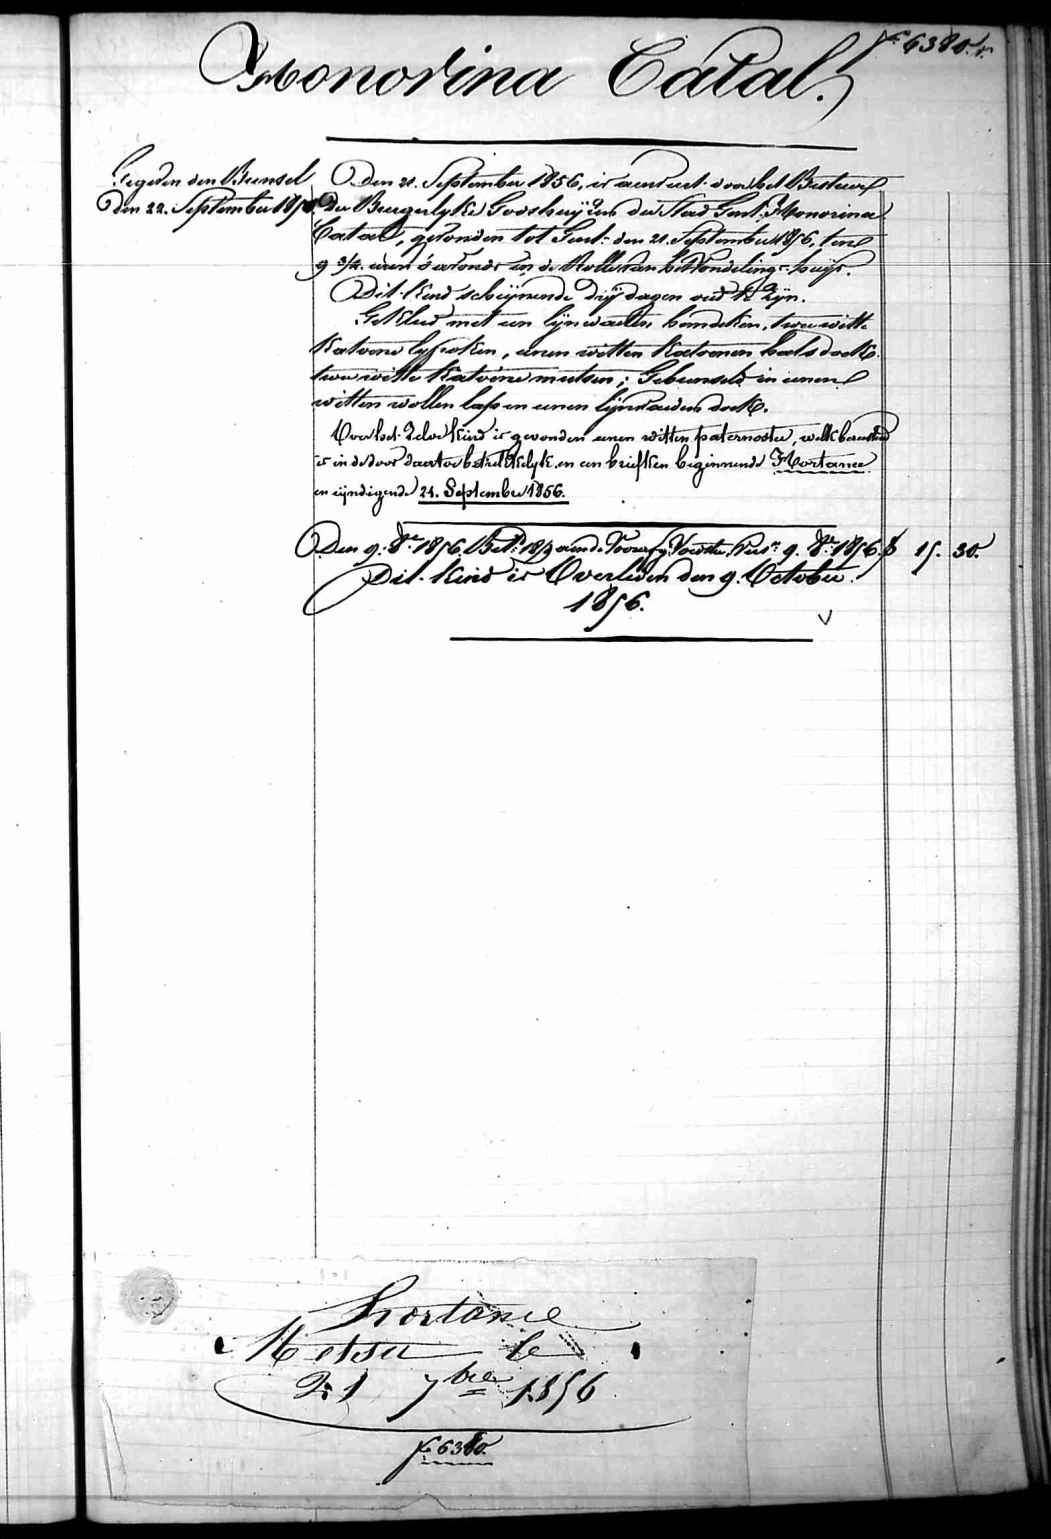 f° 6380. v°
Honorina Catal.
Gegeven den Bunsel
Den 22. September 1856.
Den 21. September 1856, is aenveerd door het Bestuer
Der Burgerlyke Godshuyzen der Stad Gent: Honorina
Catal, gevonden tot Gent: den 21. September 1856, ten
9 3/4 uren s'avonds in de Rolle van het Vondeling-huys.
Dit Kind schynende dry dagen oud te zyn.
Gekleed met een lynwaeten hemdeken, twee witte
Katoene lyfrokken, eenen witten Katoenen halsdoek
twee witte Katoene mutsen; Gebunseld in eenen
witten wollen lap en eenen lynwaeden doek.
Over het zelve kind is gevonden eenen witten paternoster, welk berustend
is in de doos daertoe betrekkelyk en een briefken beginnende Hortance
en eyndigende 21. September 1856.
Den 9. 8re 1856. Bet. aen de Voedster 9. 8re 1856. f 15. 30.
Dit Kind is Overleden den 9. October
1856.
Hortance
Metsu le
21 7bre 1856
f° 6380.